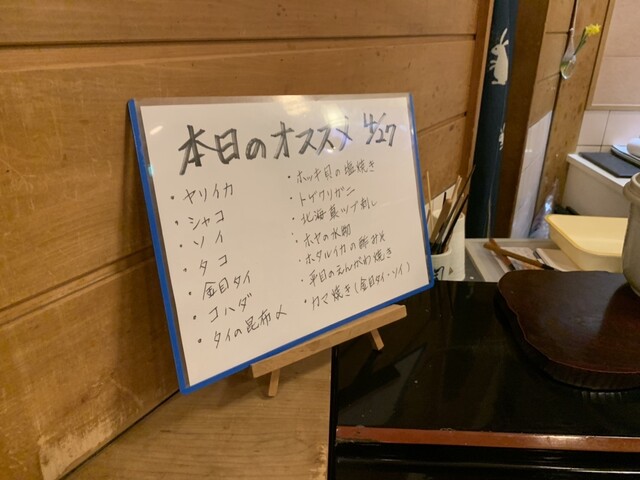 本日のオススメ 4/27
・ヤリイカ
・シャコ
・ソイ
・タコ
・金目タイ
・コハダ
・タイの昆布〆
・ホッキ貝の塩焼き
・トゲクリガニ
・北海真ツブ刺し
・ホヤの水物
・ホタルイカの酢みそ
・平目のえんがわ焼き
・カマ焼き(金目タイ・ソイ)